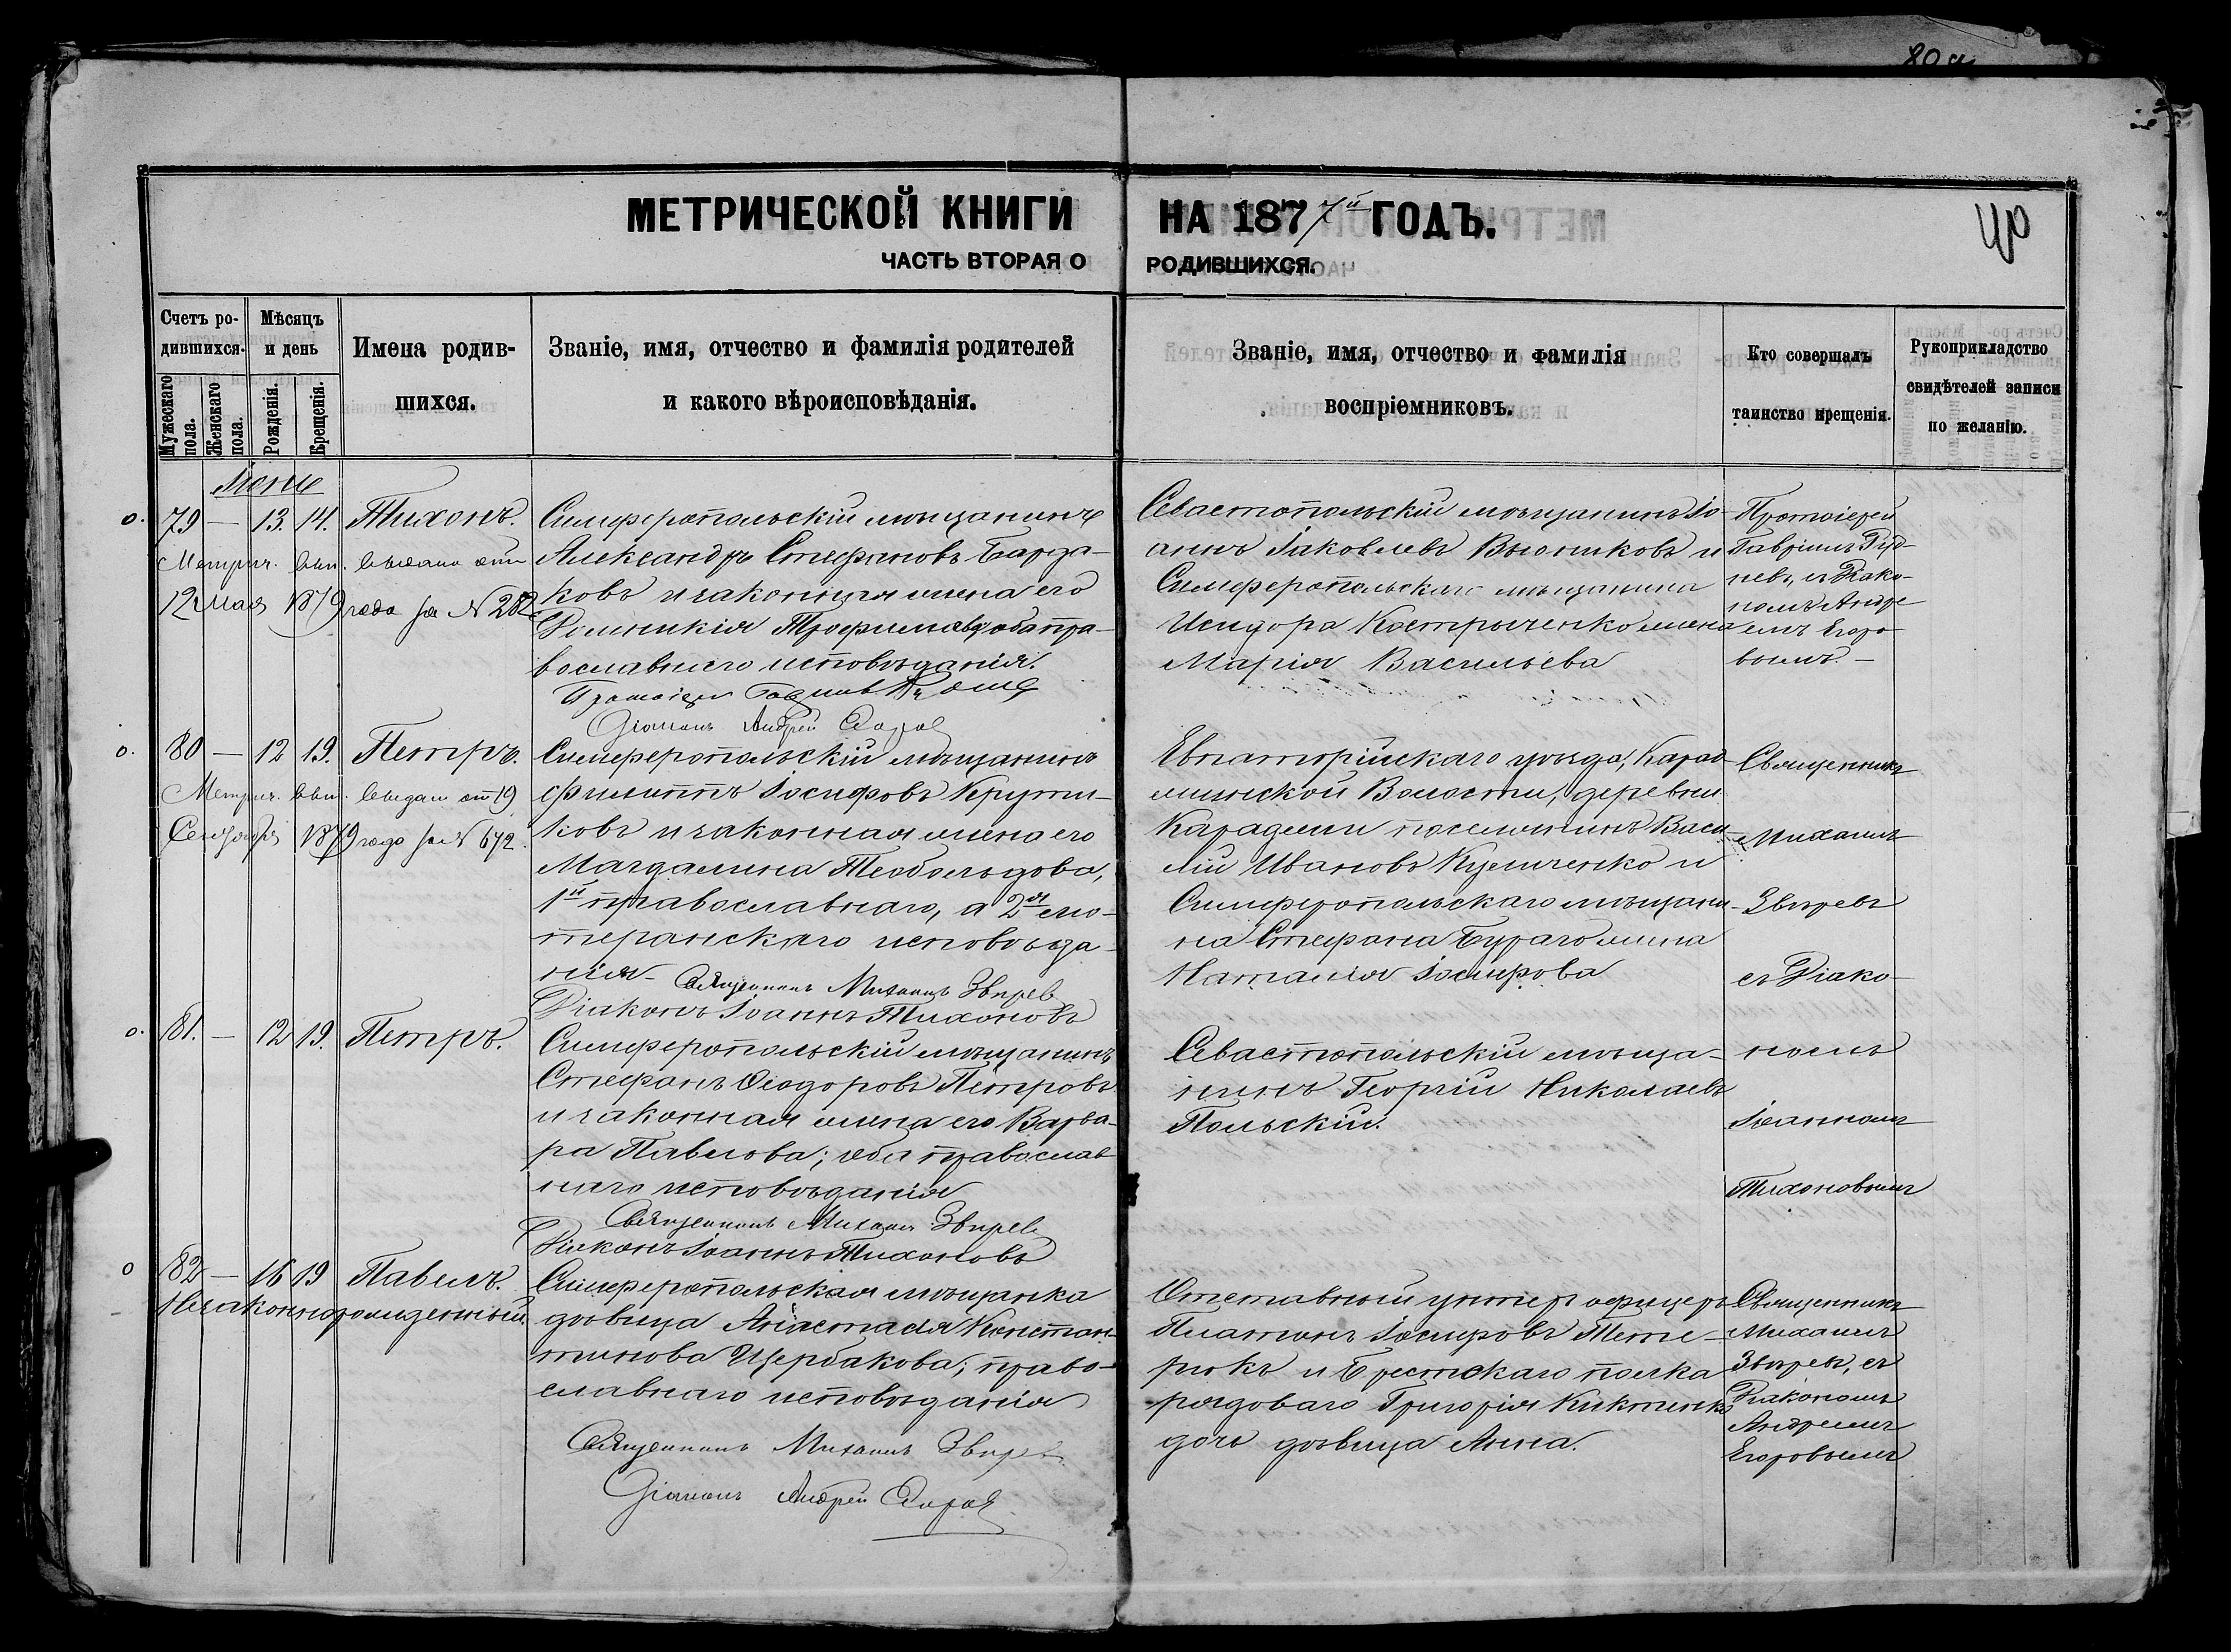 80
МЕТРИЧЕСКОЙ КНИГИ НА 1877й ГОДЪ.
40
ЧАСТЬ ВТОРАЯ О РОДИВШИХСЯ.
Счетъ ро-
дившихся.
Мужескаго пола.
Женскаго пола.
Мѣсяцъ
и день
Рожденія.
Крещенія.
Имена родив-
шихся.
Званіе, имя, отчество и фамилія родителей
и какого вѣроисповѣданія.
Званіе, имя, отчество и фамилія
воспріемниковъ.
Кто совершалъ
таинство крещенія.
Рукоприкладство
свидѣтелей записи
по желанію.
79 — 13. 14. Тихонъ.
Метрич. свид. выдано отъ
12 Мая 1879 года за № 282
Симферопольскій мѣщанинъ
Александръ Стефановъ Барда-
ковъ и законная жена его
Трофимова; оба пра-
вославнаго исповѣданія.
Діаконъ Андрей Егоровъ
Севастопольскій мѣщанинъ Іо-
аннъ Іаковлевъ Вьюниковъ и
Симферопольскаго мѣщанина
Исидора Кострыченко жена
Марія Васильева
Протоіерей
Гавріилъ Руд-
невъ, съ Діако-
номъ Андре
емъ Егоро-
вымъ. —
80 — 12 19. Петръ.
Метрич. свид. выдан от 19
Сентября 1879 года за № 672.
Симферопольскій мѣщанинъ
Филиппъ Іосифовъ Крути-
ковъ и законная жена его
Магдалина Теобольдова,
1й православнаго, а 2я лю-
теранскаго исповѣда-
нія-
Священникъ Михаилъ Звѣрев
Діаконъ Іоаннъ Тихоновъ
Евпаторійскаго уѣзда, Карад-
Волости, деревни
поселянинъ Васи-
лій Ивановъ и
Симферопольскаго мѣщани-
на Стефана жена
Наталія Іосифова
Священникъ
Михаилъ
Звѣревъ
съ Діако-
номъ
Іоанномъ
Тихоновымъ
81. — 12 19. Петръ.
Симферопольскій мѣщанинъ
Стефанъ Ѳеодоровъ Петровъ
и законная жена его Варва-
ра Павлова; оба православ
наго исповѣданія
Священникъ Михаил Звѣрев
Діаконъ Іоаннъ Тихоновъ
Севастопольскій мѣща-
нинъ Георгій Николаевъ
Польскій.
82 — 16 19 Павелъ.
Незаконнорожденный
Симферопольская мѣщанка
дѣвица Анастасія Констан-
тинова Щербакова; право-
славнаго исповѣданія
Священникъ Михаилъ Звѣрев
Діаконъ Андрей Егоровъ
Отставный унтеръ офицеръ
Платонъ Іосифовъ Тете-
рюкъ и Брестскаго полка
рядоваго Григорія Никтенко
дочь дѣвица Анна.
Священникъ
Михаилъ
Звѣревъ, съ
Діакономъ
Андреемъ
Егоровымъ